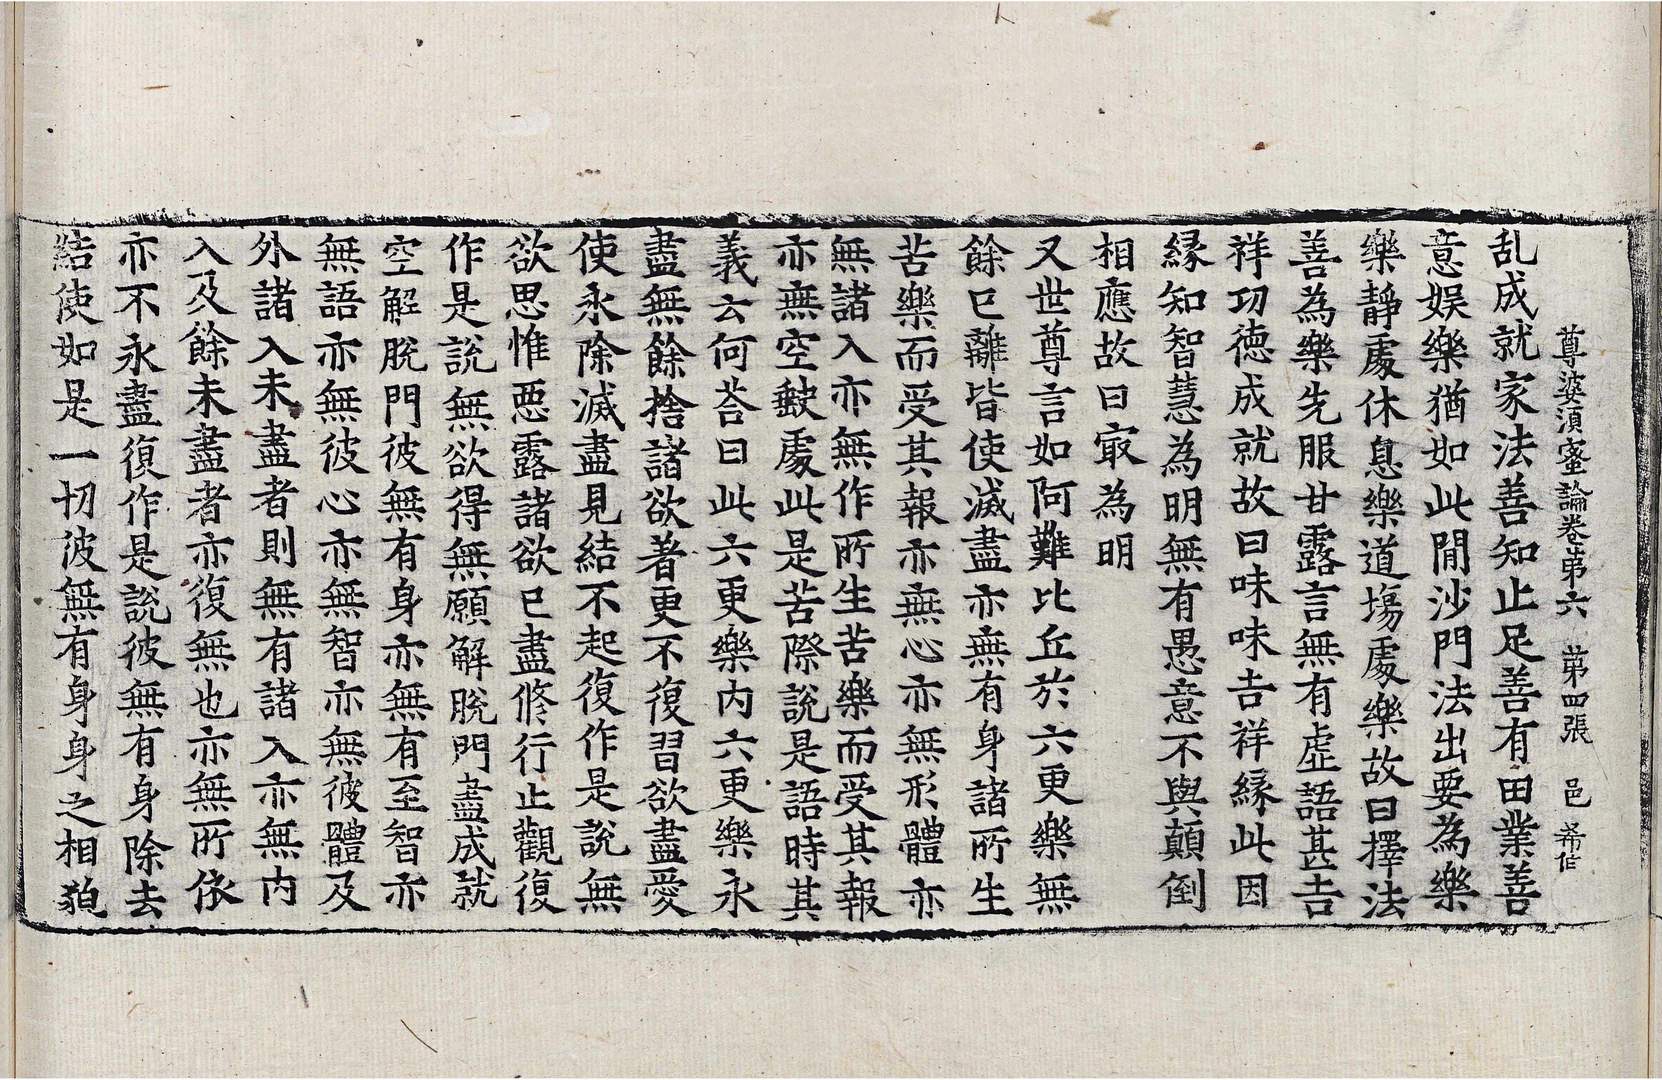 尊婆須蜜論卷苐六 苐四張 邑 希佔
乱成就家法善知止足善有田業善
意娯樂猶如此閒沙門法出要為樂
樂靜處休息樂道場處樂故曰擇法
善為樂先服甘露言無有虛語甚吉
祥功德成就故曰味味吉祥緣此因
緣知智慧為明無有愚意不與顛倒
相應故曰㝡為明
又世尊言如阿難比丘於六更樂無
餘已離皆使滅盡亦無有身諸所生
苦樂而受其報亦無心亦無形體亦
無諸入亦無作所生苦樂而受其報
亦無空缺處此是苦際說是語時其
義云何荅曰此六更樂內六更樂永
盡無餘捨諸欲著更不復習欲盡愛
使永除滅盡見結不起復作是說無
欲思惟惡露諸欲已盡修行止觀復
作是說無欲得無願解脫門盡成就
空解脫門彼無有身亦無有至智亦
無語亦無彼心亦無智亦無彼體及
外諸入未盡者則無有諸入亦無內
入及餘未盡者亦復無也亦無所依
亦不永盡復作是說彼無有身除去
結使如是一切彼無有身身之相㹮